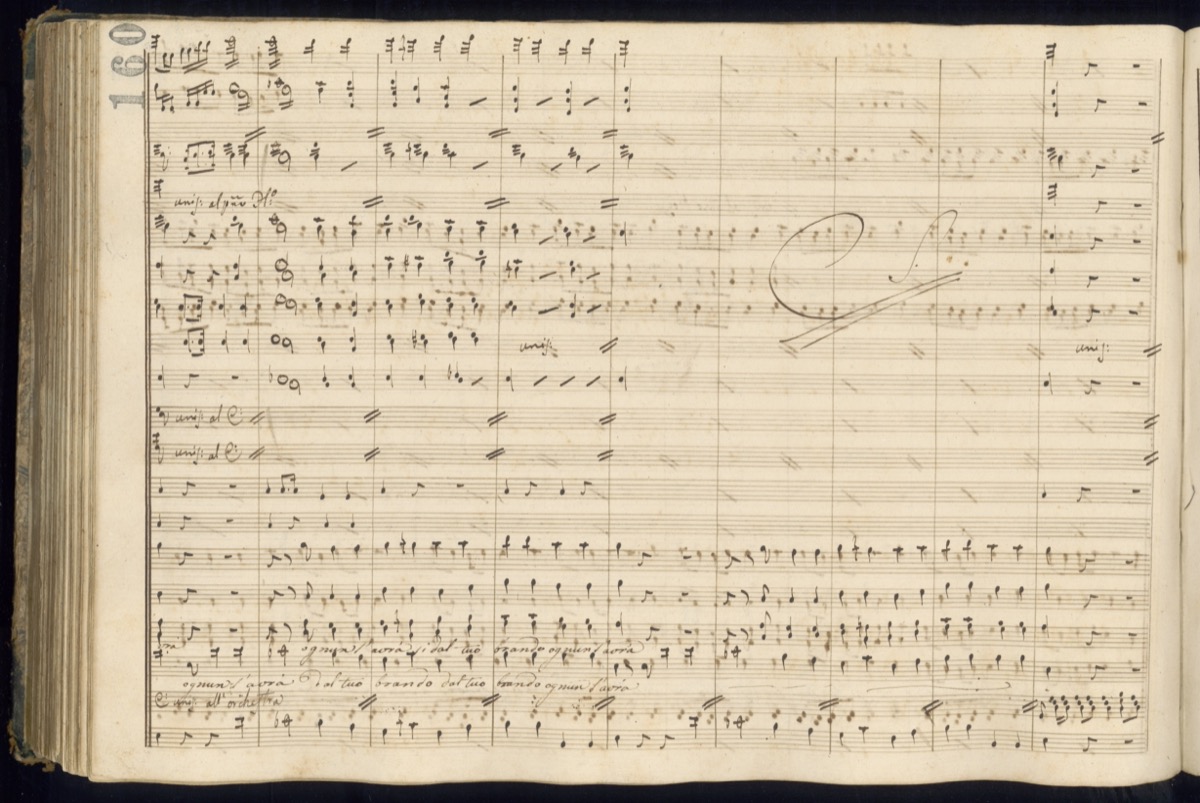 160
unis: al
unis:
unis:
unis: al C:
unis: al C:
ognun s'avrà si dal tuo brando ognun s'avrà
ognun s'avrà dal tuo brando dal tuo brando ognun s'avrà
C: unis: all' orchestra